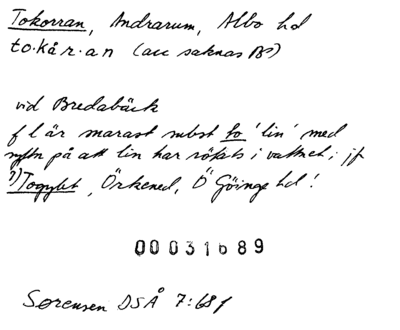 Tokorran, Andrarum, Albo hd
to·kår·an (acc saknas BS)
vid Bredabäck
f l är marast subst to 'lin' med
syftn på att lin har rötats i vattnet; jf
?)Togylet, Örkened, Ö Göinge hd!
00031689
Sørensen DSÅ 7:68f